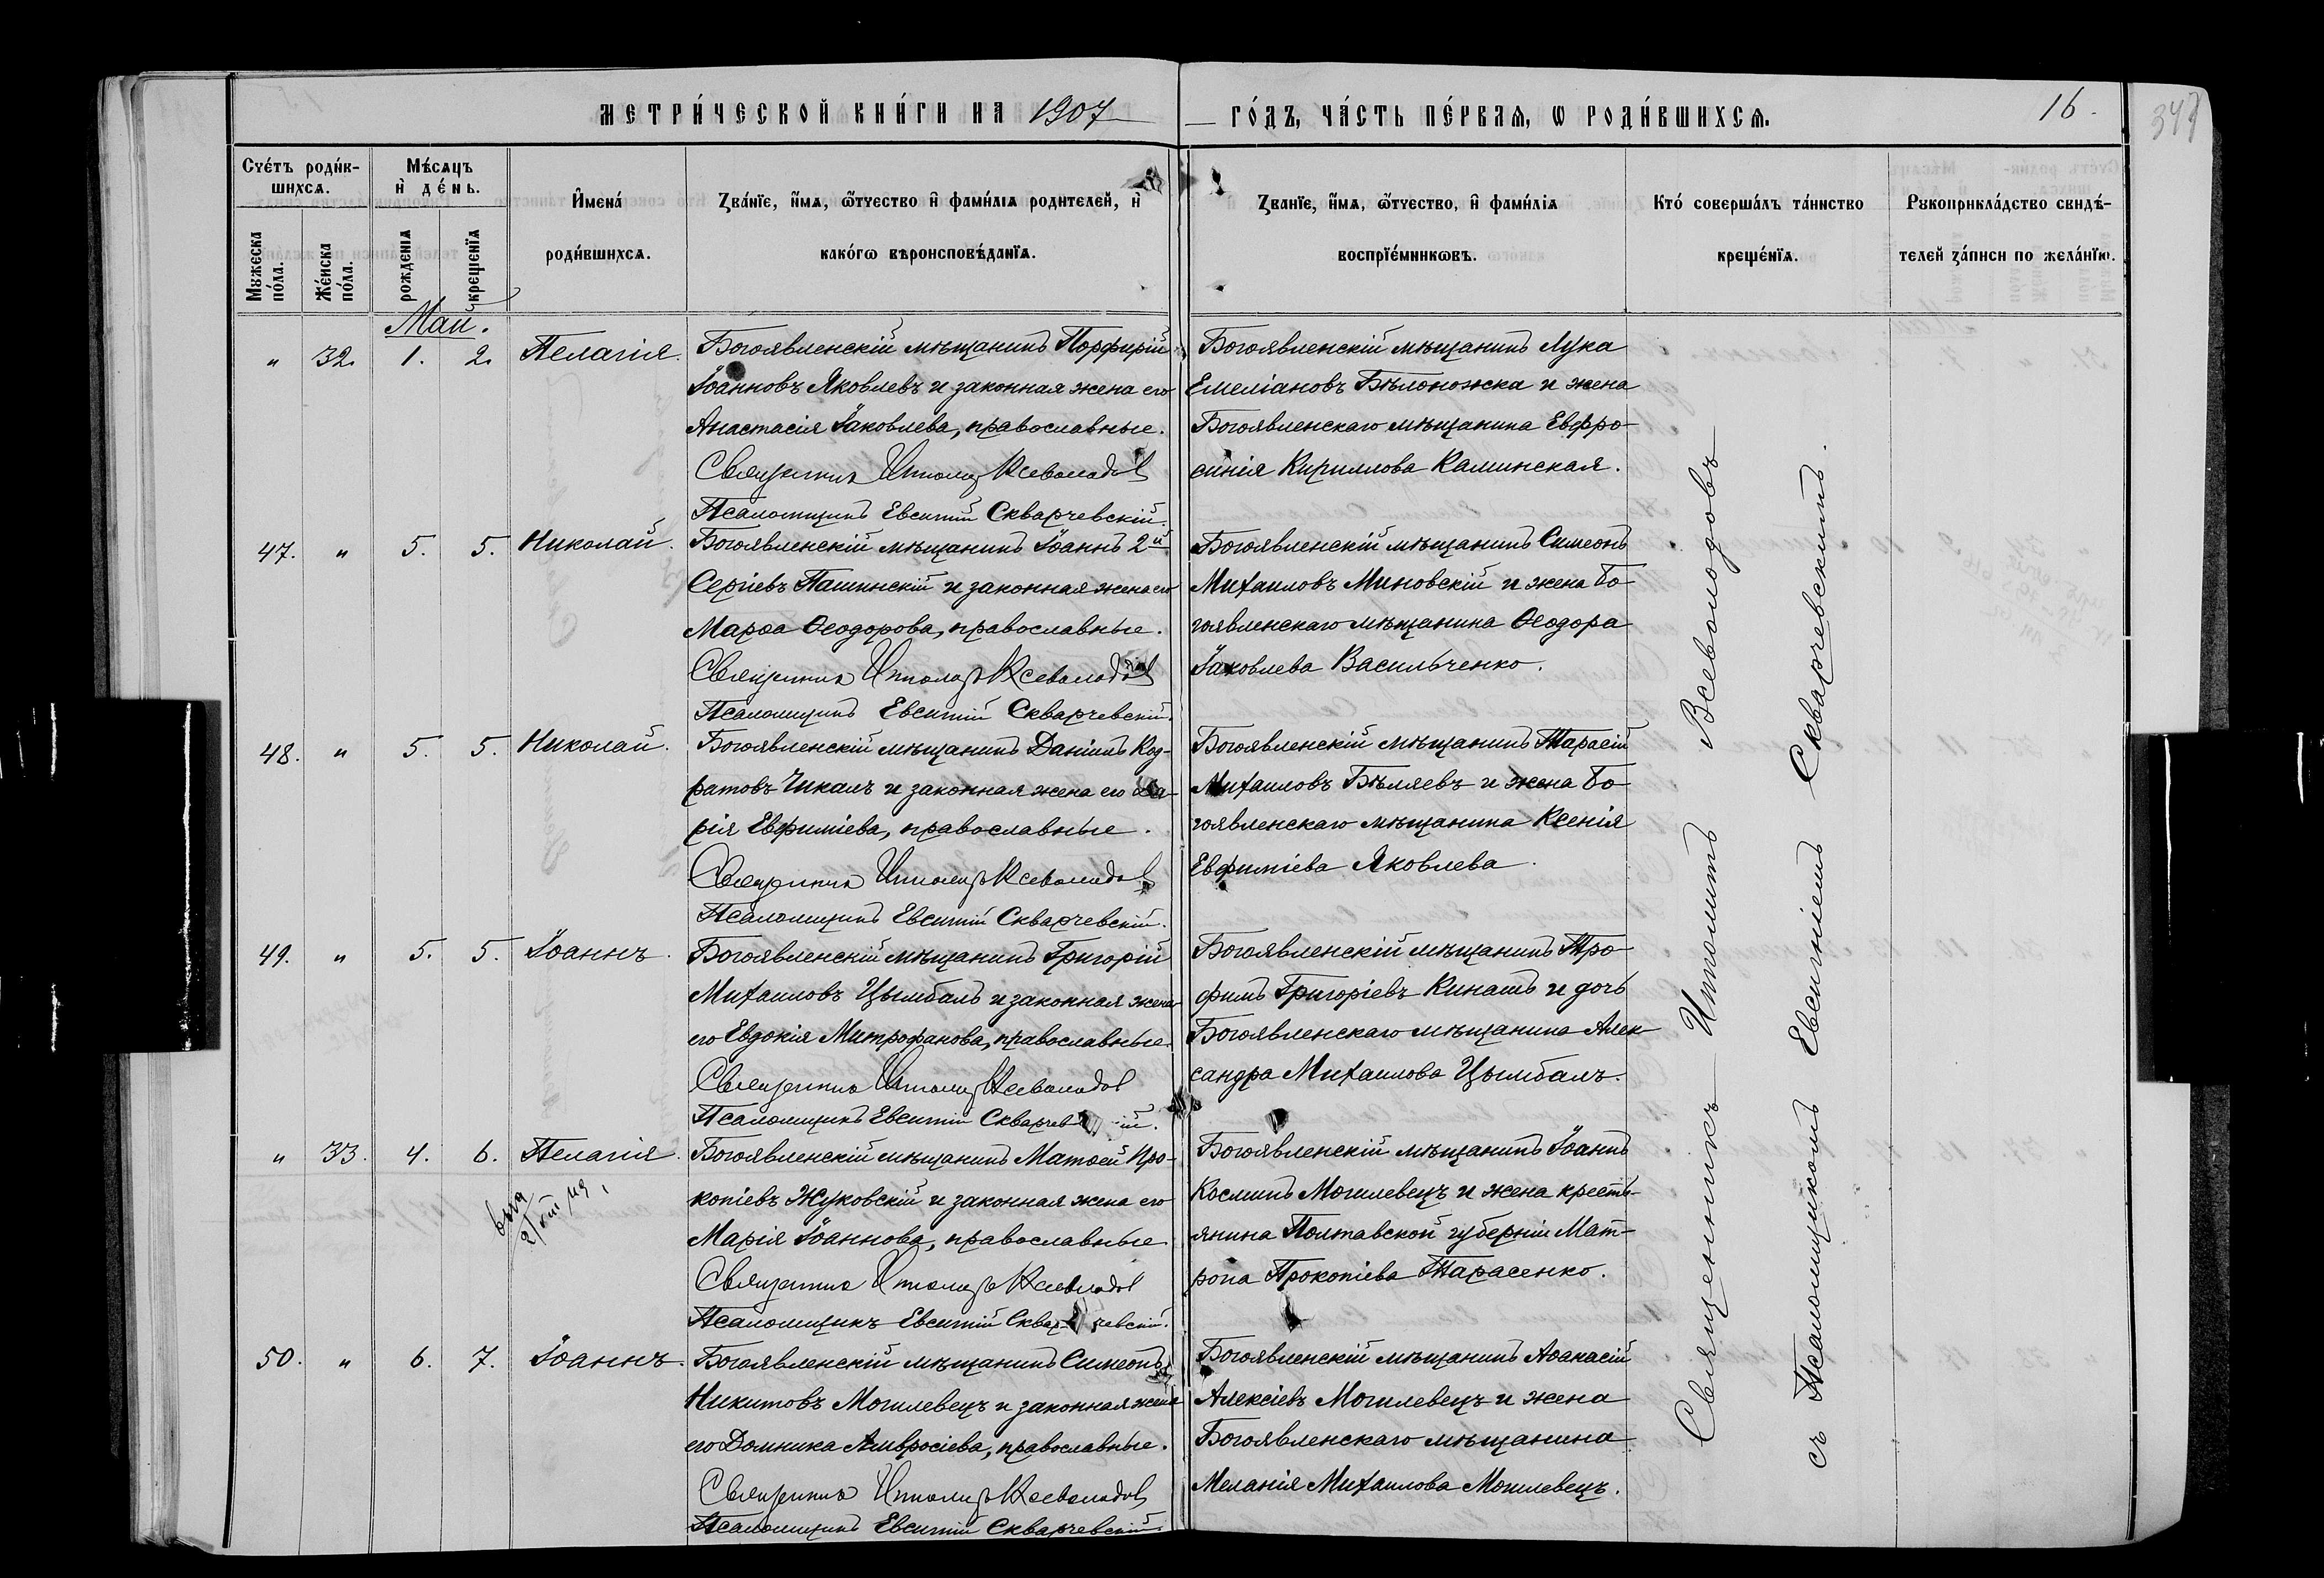 МЕТРИ́ЧЕСКОЙ КНИ́ГИ НА 1907
ГО́ДЪ, ЧА́СТЬ ПЕ́РВАѦ, Ѡ РОДИ́ВШИХСѦ.
16.
347
Сче́тъ роди́в-
шихсѧ.
Мѣ́сѧцъ
и҆ де́нь.
И҆мена́
роди́вшихсѧ.
Зва́нїе, и҆́мѧ, ѻ҆́тчество и҆ фами́лїѧ родителей, и҆
како́гѡ вѣроисповѣ́данїѧ.
Зва́нїе, и҆́мѧ, ѻ҆́тчество, и҆ фами́лїѧ
воспрїе́мникѡвъ.
Кто́ соверша́лъ та́инство
креще́нїѧ.
Рꙋкоприкла́дство свидѣ́-
телей за́писи по жела́нїю.
Мꙋжеска
по́ла.
Же́нска
по́ла.
рожденїѧ
крещенїѧ
Май.
„ 32. 1. 2. Пелагія.
Богоявленскій мѣщанинъ Порфирій
Іоанновъ Яковлевъ и законная жена его
Анастасія Іаковлева, православные.
Священникъ Ипполитъ Всеволодовъ
Псаломщикъ Евсигній Скварчевскій.
Богоявленскій мѣщанинъ Лука
Емеліановъ Бѣлоножка и жена
Богоявленскаго мѣщанина Евфро-
синія Кириллова Каминская.
47. „ 5. 5. Николай.
Богоявленскій мѣщанинъ Іоаннъ 2й
Сергіевъ Пашинскій и законная жена его
Марѳа Ѳеодорова, православные.
Священникъ Ипполитъ Всеволодовъ
Псаломщикъ Евсигній Скварчевскій.
Богоявленскій мѣщанинъ Симеонъ
Михаиловъ Миновскій и жена Бо-
гоявленскаго мѣщанина Ѳеодора
Іаковлева Васильченко.
48. „ 5. 5. Николай.
Богоявленскій мѣщанинъ Даніилъ Код-
ратовъ Чикалъ и законная жена его Да-
рія Евфиміева, православные.
Священникъ Ипполитъ Всеволодовъ
Псаломщикъ Евсигній Скварчевскій.
Богоявленскій мѣщанинъ Тарасій
Михаиловъ Бѣляевъ и жена Бо-
гоявленскаго мѣщанина Ксенія
Евфиміева Яковлева.
49. „ 5. 5. Іоаннъ.
Богоявленскій мѣщанинъ Григорій
Михаиловъ Цымбалъ и законная жена
его Евдокія Митрофанова, православные.
Священникъ Ипполитъ Всеволодовъ
Псаломщикъ Евсигній Скварчевскій.
Богоявленскій мѣщанинъ Тро-
фимъ Григоріевъ Кинашъ и дочь
Богоявленскаго мѣщанина Алек-
сандра Михаилова Цымбалъ.
„ 33. 4. 6. Пелагія.
Богоявленскій мѣщанинъ Матѳей Про-
копіевъ Жуковскій и законная жена его
Марія Іоаннова, православные.
Священникъ Ипполитъ Всеволодовъ
Псаломщикъ Евсигній Скварчевскій.
Богоявленскій мѣщанинъ Іоаннъ
Косминъ Могилевецъ и жена кресть-
янина Полтавской губерніи Мат-
рона Прокопіева Тарасенко.
50. „ 6. 7. Іоаннъ.
Богоявленскій мѣщанинъ Симеонъ
Никитовъ Могилевецъ и законная жена
его Домника Амвросіева, православные.
Священникъ Ипполитъ Всеволодовъ
Псаломщикъ Евсигній Скварчевскій.
Богоявленскій мѣщанинъ Аѳанасій
Алексіевъ Могилевецъ и жена
Богоявленскаго мѣщанина
Меланія Михаилова Могилевецъ.
Священникъ Ипполитъ Всеволодовъ
съ Псаломщикомъ Евсигніемъ Скварчевскимъ.